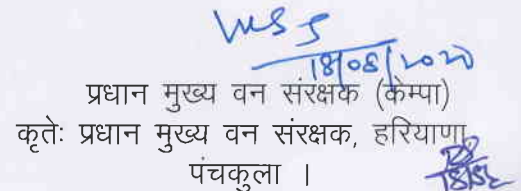 18/08/2020
प्रधान मुख्य वन संरक्षक (केम्पा)
कृतेः प्रधान मुख्य वन संरक्षक, हरियाणा,
पंचकुला ।